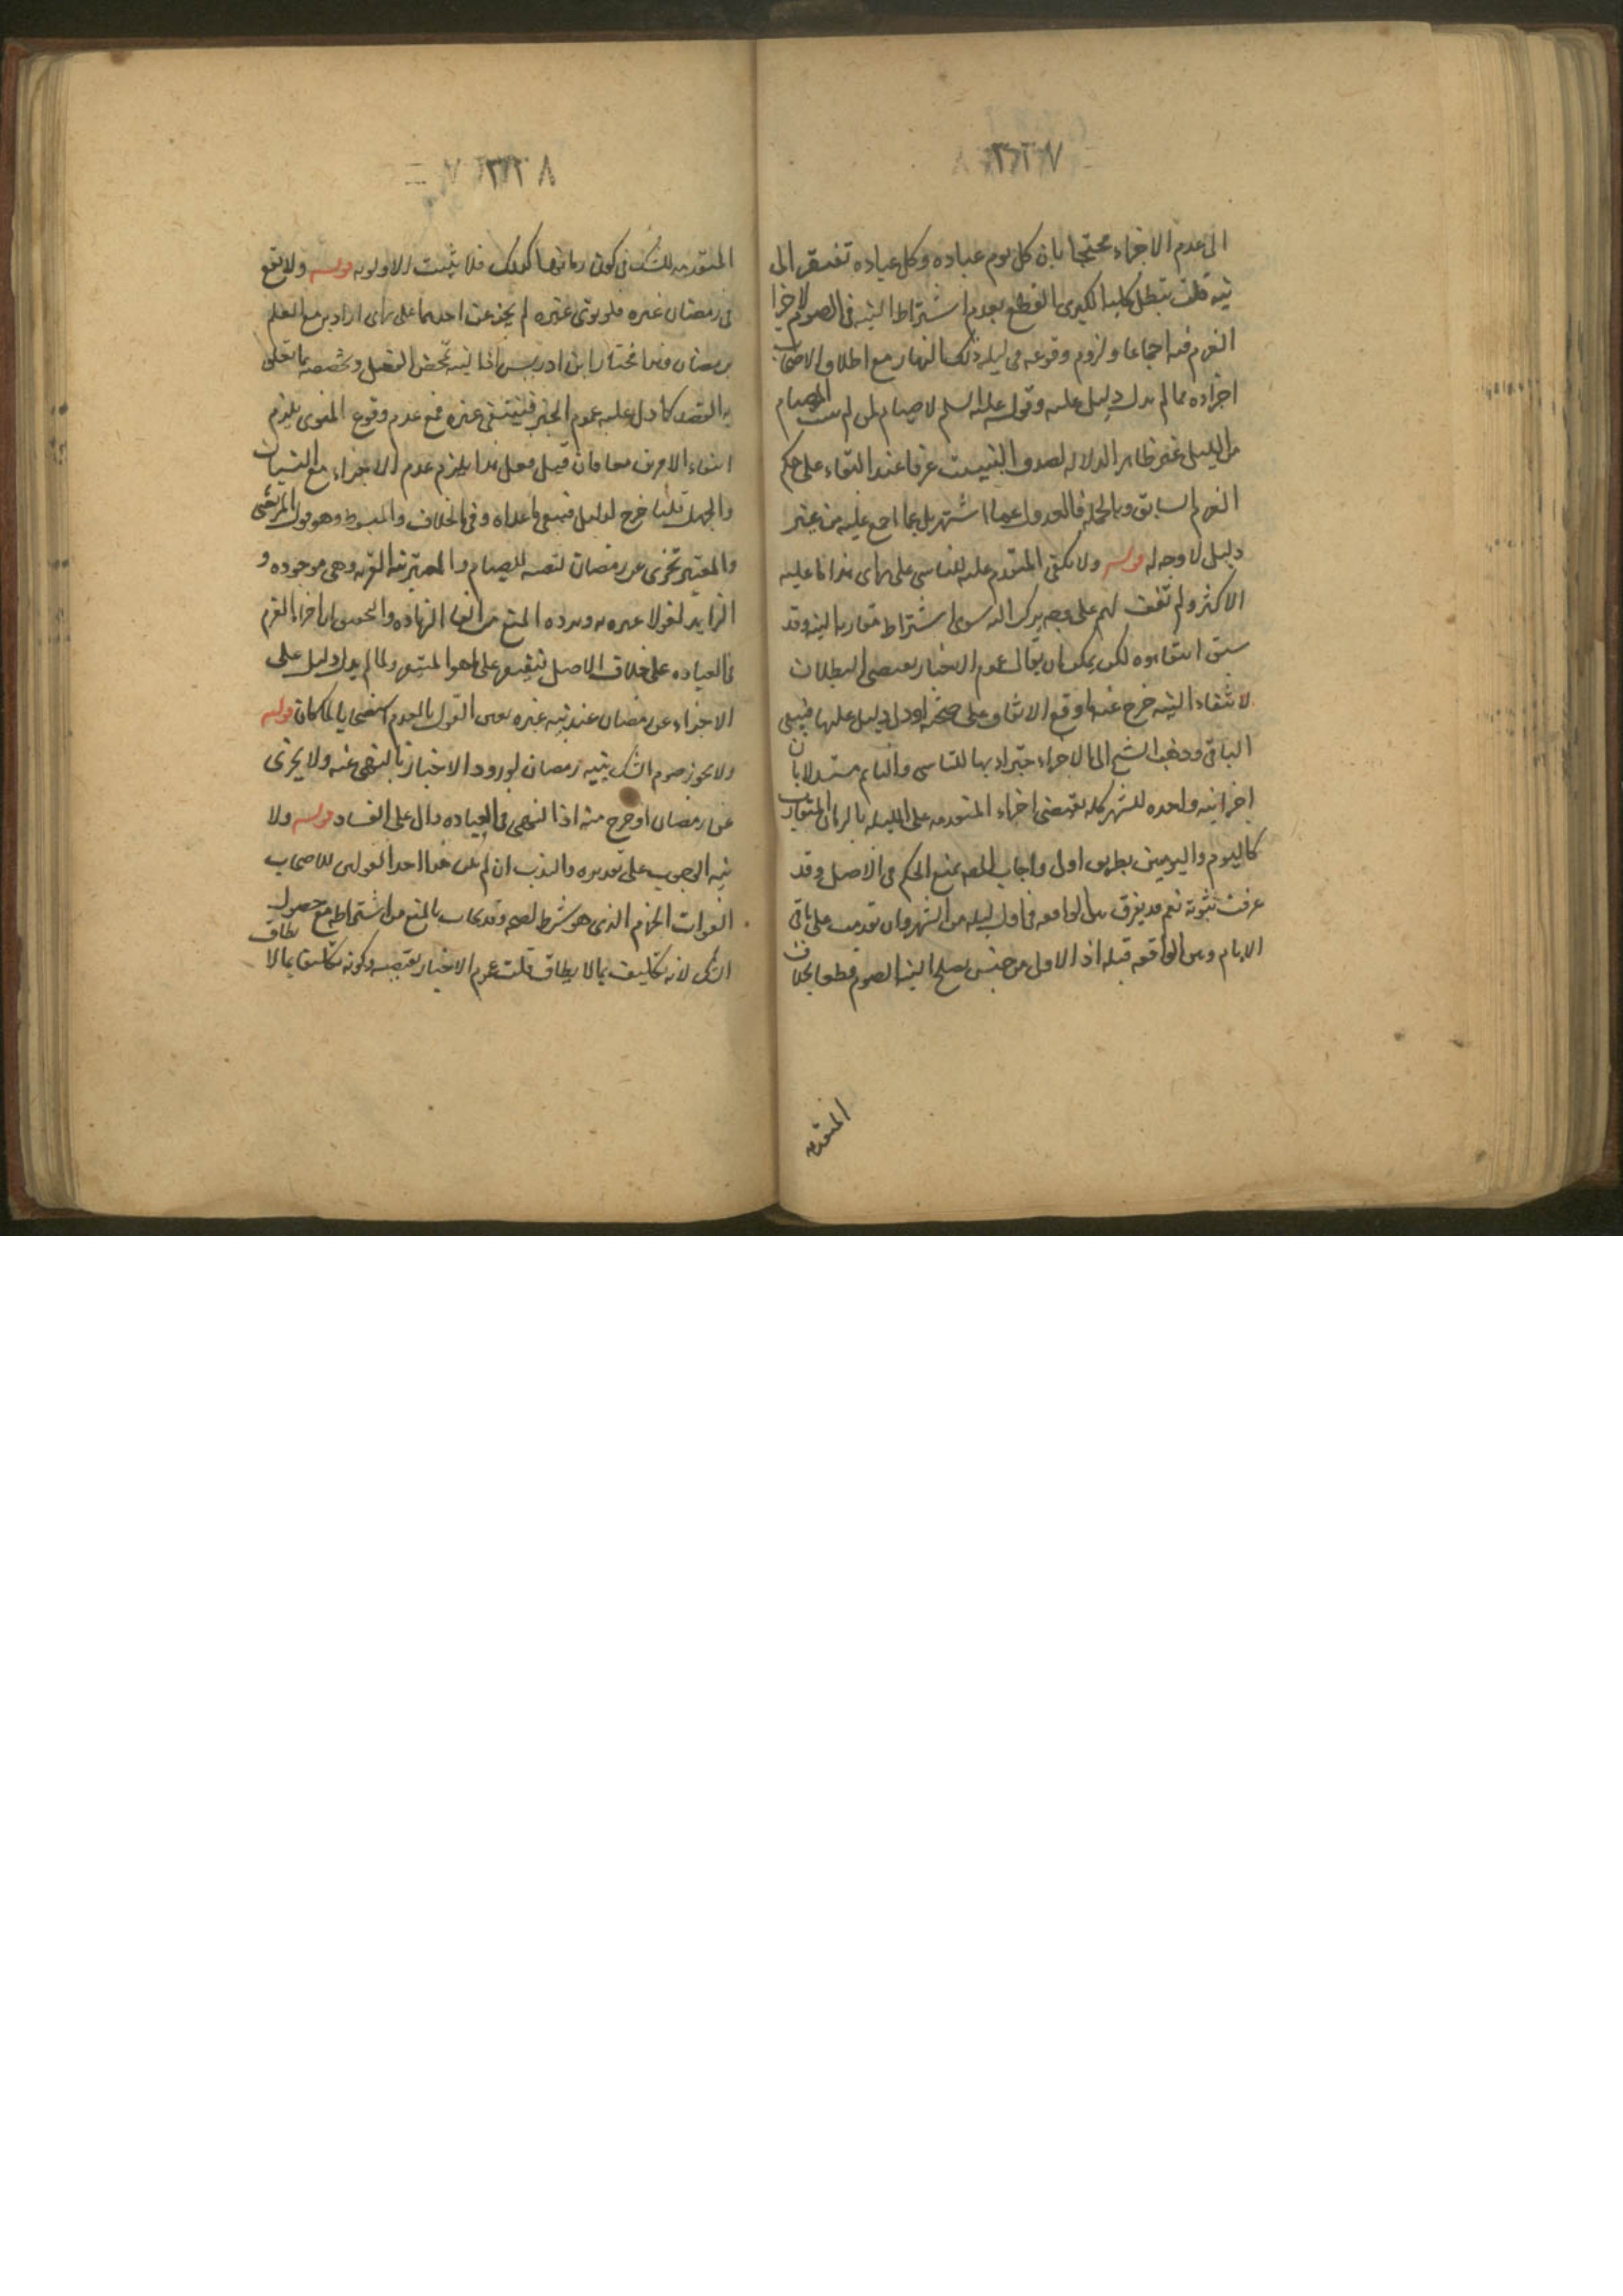 الى عدم الاجزاء محتجا بان كل يوم عباده وكل عباده تفتقر الى
نيه قلت تبطل كليه الكبرى بالقطع بعدم اشتراط النيه فى الصوم لاجزا
العزم فيه اجماعا ولزوم وقوعه فى ليله ذلك النهار مع اطلاق الاصحاب
اجزاءه مما لم يدل دليل عليه وقوله عليه السلم لا صيام لمن لم يبيت الصيام
من الليل غير ظاهر الدلاله لصدق التبييت عرفا عند البقاء على حكم
العزم السابق وبالجمله فالعدول عما اشتهر بل عما اجمع عليه من غير
دليل لا وجه له قوله ولا يكفى المتقدم عليه للناسى على راى هذا ما عليه
الاكثر ولم نقف لهم على وجه يركن اليه سوى اشتراط مقاربه النيه وقد
سبق انتفاءوه لكن يمكن ان يقال عموم الاخبار يقتضى البطلان
لانتفاء النيه خرج عنه ما وقع الاتفاق على صحته او دل دليل عليها فيبقى
الباقى وذهب الشيخ الى الاجزاء حينئذ بها للناسى والنايم مستدلا بان
اجزا نيه واحده للشهر كله يقتضى اجزاء المتقدمه على الليله بالزمان المتقارب
كاليوم واليومين بطريق اولى واجاب المصه بمنع الحكم فى الاصل وقد
عرفت ثبوته نعم قد يفرق بين الواقعه فى اول ليله من الشهر وان تقدمت على باقى
الايام وبين الواقعه قبله اذ الاول من جنس يصلح لنيه الصوم قطعا بخلاف
المتقدمه
المتقدمه للشك فى كون زمانها كذلك فلا يثبت الاولويه قوله ولا يقع
فى رمضان غيره فلو نوى غيره لم يجز عن احدهما على راى اراد به مع العلم
برمضان وهذا مختار ابن ادريس اذ النيه تخص الفعل وتخصصه بما تعلق
به القصد كما دل عليه عموم الخبر فينتفى غيره فمع عدم وقوع المنوى يلزم
انتفاء الامرين معا فان قيل فعلى هذا يلزم عدم الاجزاء مع النسيان
والجهل قلنا خرج لدليل فيبقى ما عداه وفى الخلاف والمبسوط وهو قول المرتضى
والمعتبر تجزى عن رمضان لتعينه للصيام والمعتبر نيه القربه وهى موجوده و
الزايد لغو لا عبره به ويرده المنع من الغاء الزياده والتحقيق ان اجزاء العزم
فى العباده على خلاف الاصل فيقتصر على ما هو المتيقن ولما لم يدل دليل على
الاجزاء عن رمضان عند نيه غيره تعين القول بالعدم استصحابا لما كان قوله
ولا يجوز صوم الشك بنيه رمضان لورود الاخبار بالنهى عنه ولا يجزى
عن رمضان لو خرج منه اذ النهى فى العباده دال على الفساد قوله ولا
نيه الوجوب على تقديره والندب ان لم يكن هذا احد القولين للاصحاب
لفوات الجزم الذى هو شرط لصحته وقد يجاب بالمنع من اشتراطه مع حصول
الشك لانه تكليف بما لا يطاق قلت عموم الاخبار يقتضيه وكونه تكليفا بما لا يطاق